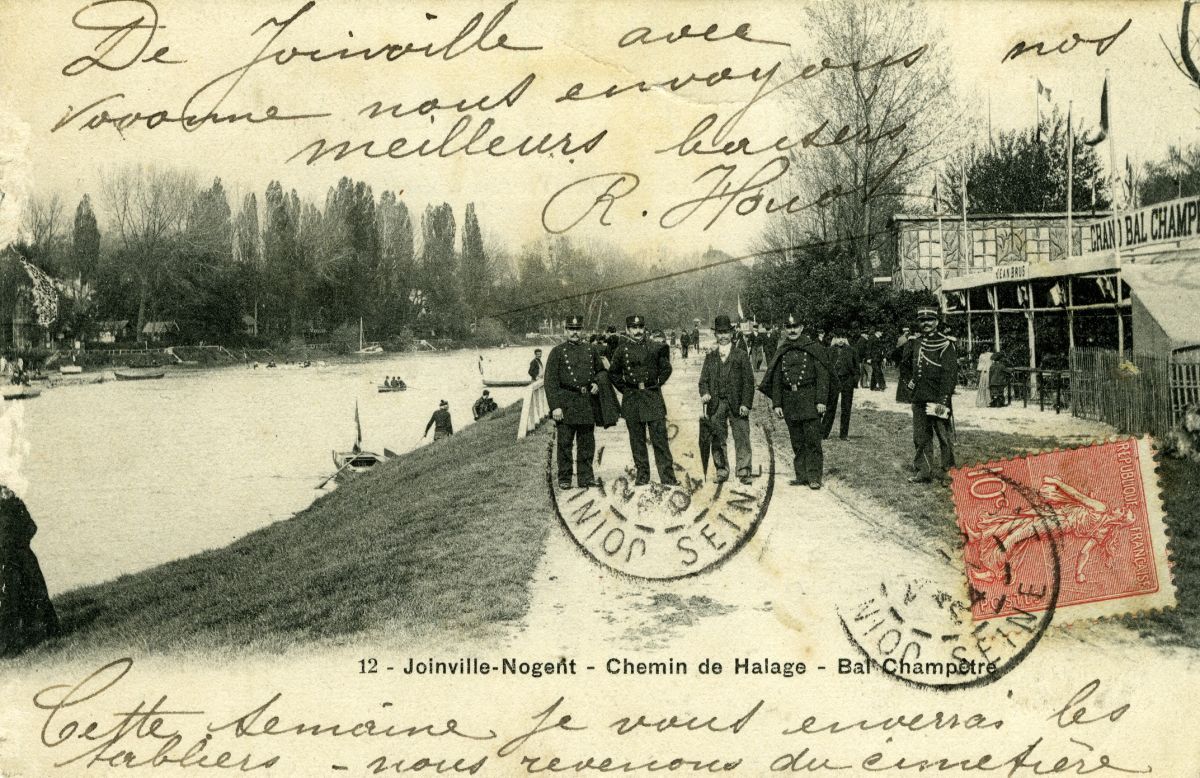 De Joinville avec
Vovonne nous envoyons nos
meilleurs baisers
R.
GRAND BAL CHAMPE
JEAN BRUS
10c
REPUBLIQUE FRANÇAISE
POSTES
JOINV SEINE
04
JOINV SEINE
12 - Joinville-Nogent - Chemin de Halage - Bal Champêtre
Cette semaine je vous enverrai les
tabliers - nous revenons du cimetière